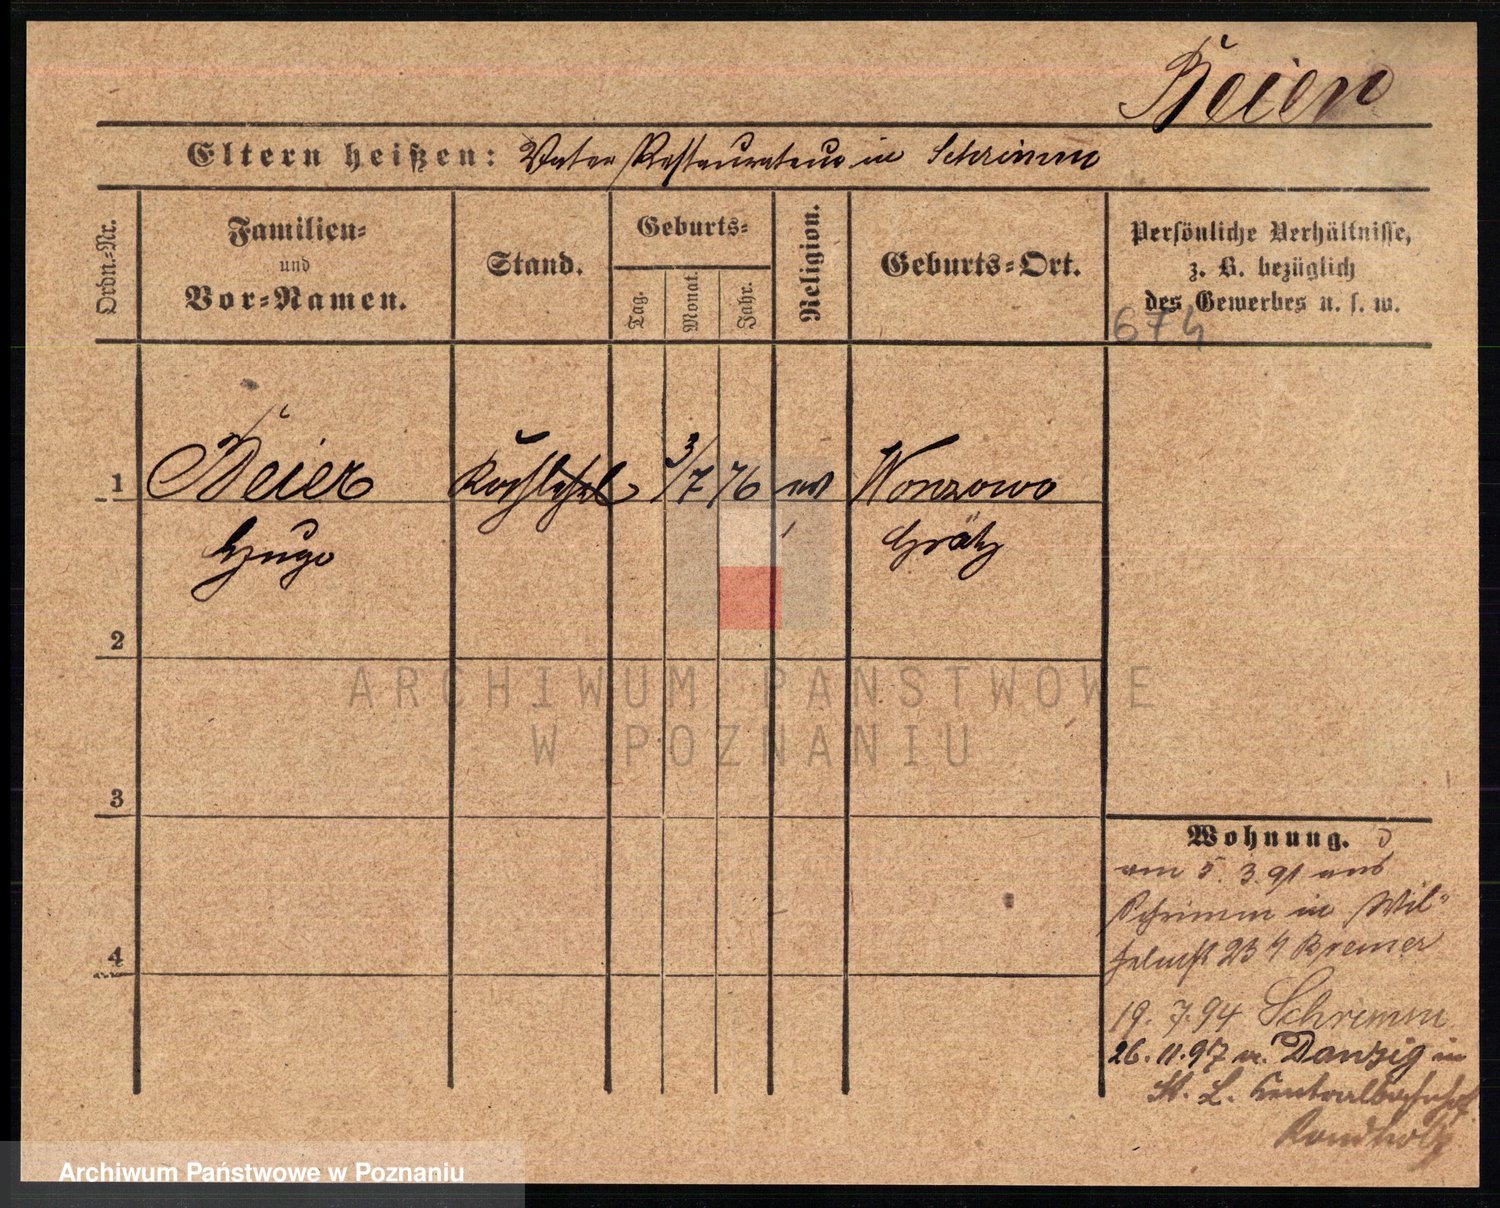 Beier
Eltern heißen: Vater Restaurateur in Schrimm
Ordn.-Nr.
Familien-
und
Vor-Namen.
Stand.
Geburts-
Tag.
Monat.
Jahr.
Religion.
Geburts-Ort.
Persönliche Verhältnisse,
z. B. bezüglich
des Gewerbes u. s. w.
674
1 Beier Kochlehrl 3/7 76 ev Wonsowo
Hugo Grätz
2
3
4
ARCHIWUM PAŃSTWOWE
W POZNANIU
Wohnung.
am 5. 3. 91 aus
Schrimm in Wil-
helmst 23 Bremer
19. 7. 94 Schrimm
26. 11. 97 a. Danzig in
St. L. Centralbahnhof
Archiwum Państwowe w Poznaniu